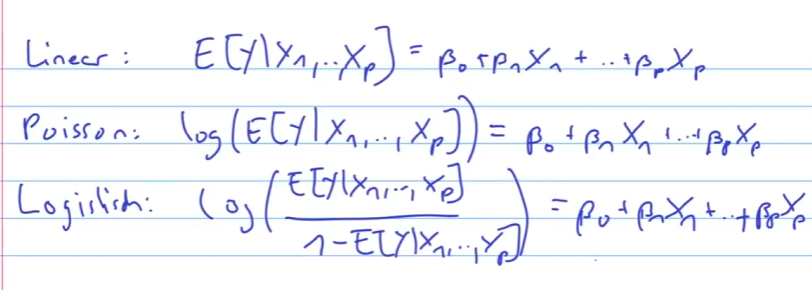 Linear: E[Y|X₁,..,Xₚ] = β₀+β₁X₁ + ..+βₚXₚ
Poisson: log(E[Y|X₁,..,Xₚ]) = β₀+β₁X₁+..+βₚXₚ
Logistisch: log(E[Y|X₁,..,Xₚ] / 1-E[Y|X₁,..,Xₚ]) = β₀+β₁X₁+..+βₚXₚ